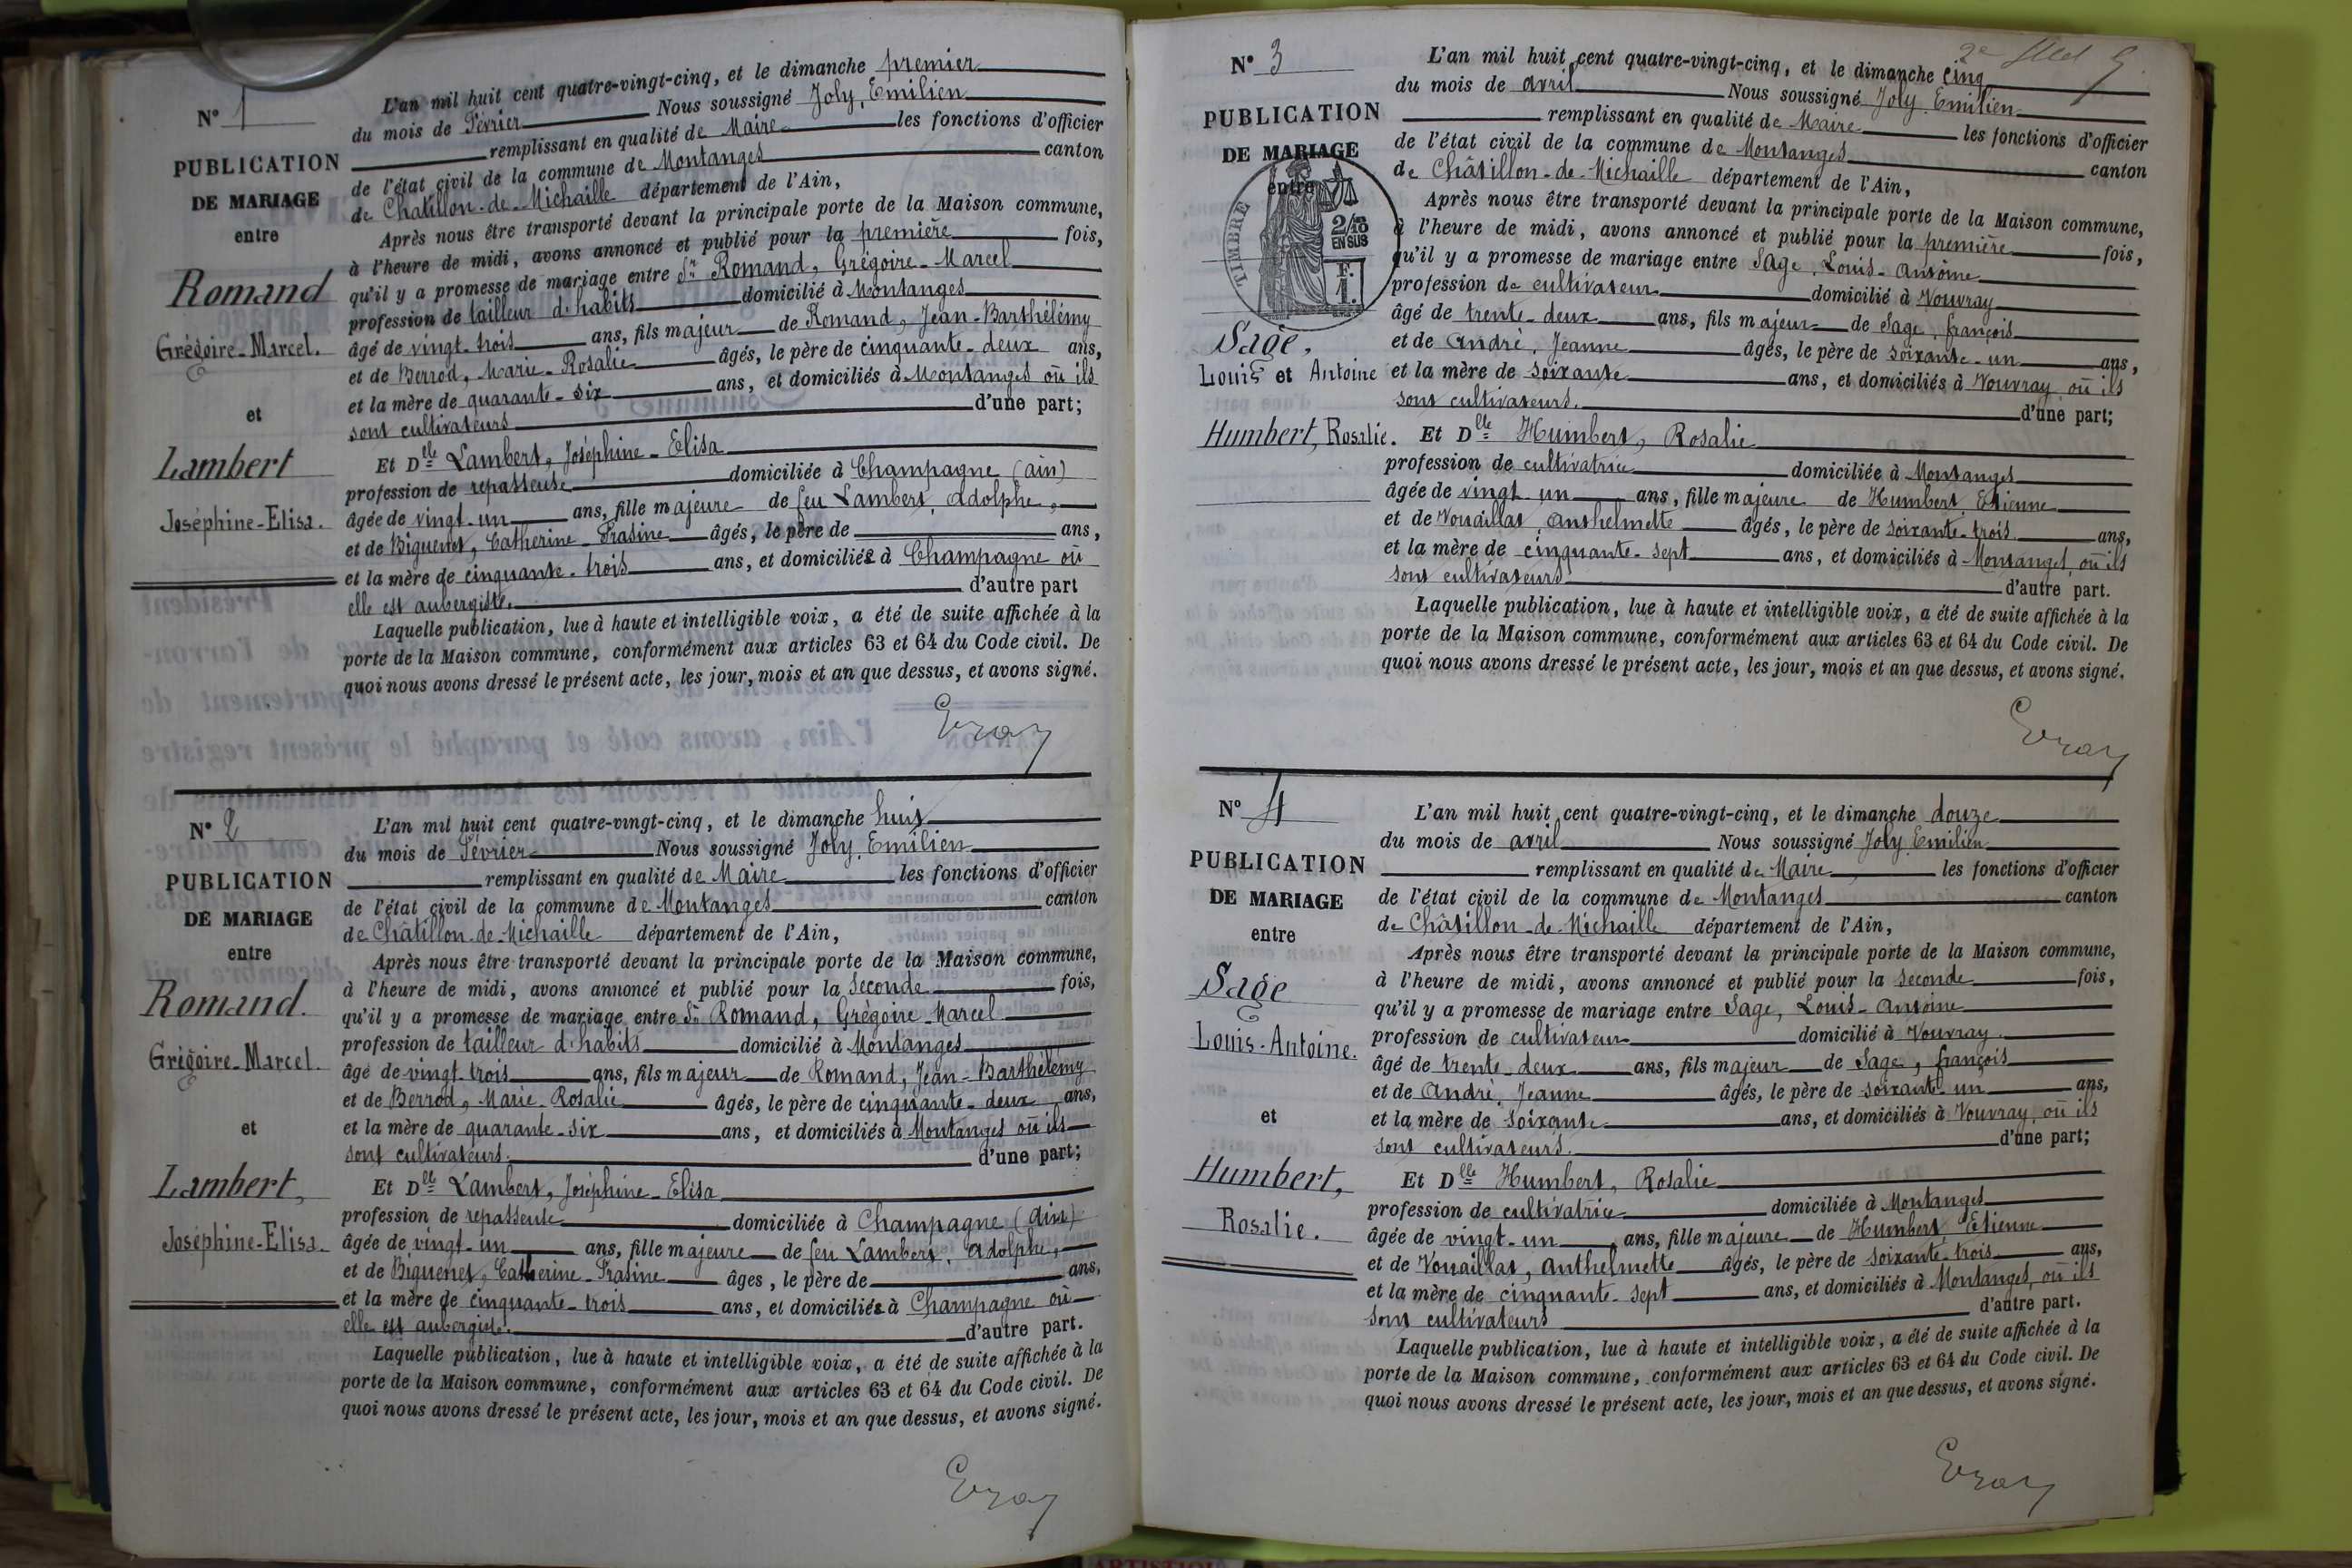 N° 1
PUBLICATION
DE MARIAGE
entre
Romand
Grégoire-Marcel.
et
Lambert
Joséphine-Elisa.
L'an mil huit cent quatre-vingt-cinq, et le dimanche premier
du mois de Février Nous soussigné Joly, Emilien
remplissant en qualité de Maire les fonctions d'officier
de l'état civil de la commune de Montanges canton
de Châtillon-de-Michaille département de l'Ain,
Après nous être transporté devant la principale porte de la Maison commune,
à l'heure de midi, avons annoncé et publié pour la première fois,
qu'il y a promesse de mariage entre Sr Romand, Grégoire-Marcel
profession de tailleur d'habits domicilié à Montanges
âgé de vingt-trois ans, fils majeur de Romand, Jean-Barthélémy
et de Berrod, Marie-Rosalie âgés, le père de cinquante-deux ans,
et la mère de quarante-six ans, et domiciliés à Montanges où ils
sont cultivateurs d'une part;
Et Dlle Lambert, Joséphine-Elisa
profession de repasseuse domiciliée à Champagne (ain)
âgée de vingt-un ans, fille majeure de feu Lambert, Adolphe,
et de Biguenet, Catherine-Frasine âgés, le père de ans,
et la mère de cinquante-trois ans, et domiciliés à Champagne où
elle est aubergiste. d'autre part
Laquelle publication, lue à haute et intelligible voix, a été de suite affichée à la
porte de la Maison commune, conformément aux articles 63 et 64 du Code civil. De
quoi nous avons dressé le présent acte, les jour, mois et an que dessus, et avons signé.
N° 2
PUBLICATION
DE MARIAGE
entre
Romand.
Grégoire-Marcel.
et
Lambert,
Joséphine-Elisa.
L'an mil huit cent quatre-vingt-cinq, et le dimanche huit
du mois de Février Nous soussigné Joly, Emilien
remplissant en qualité de Maire les fonctions d'officier
de l'état civil de la commune de Montanges canton
de Châtillon-de-Michaille département de l'Ain,
Après nous être transporté devant la principale porte de la Maison commune,
à l'heure de midi, avons annoncé et publié pour la seconde fois,
qu'il y a promesse de mariage entre Sr Romand, Grégoire-Marcel
profession de tailleur d'habits domicilié à Montanges
âgé de vingt-trois ans, fils majeur de Romand, Jean-Barthélémy
et de Berrod, Marie-Rosalie âgés, le père de cinquante-deux ans,
et la mère de quarante-six ans, et domiciliés à Montanges où ils
sont cultivateurs. d'une part;
Et Dlle Lambert, Joséphine-Elisa
profession de repasseuse domiciliée à Champagne (Ain)
âgée de vingt-un ans, fille majeure de feu Lambert, Adolphe,
et de Biguenet, Catherine-Frasine âges, le père de ans,
et la mère de cinquante-trois ans, et domiciliés à Champagne où
elle est aubergiste. d'autre part.
Laquelle publication, lue à haute et intelligible voix, a été de suite affichée à la
porte de la Maison commune, conformément aux articles 63 et 64 du Code civil. De
quoi nous avons dressé le présent acte, les jour, mois et an que dessus, et avons signé.
N° 3
PUBLICATION
DE MARIAGE
entre
TIMBRE
2/10
EN SUS
F.
1.
Sage,
Louis et Antoine
Humbert, Rosalie.
L'an mil huit cent quatre-vingt-cinq, et le dimanche cinq
du mois de avril Nous soussigné Joly, Emilien
remplissant en qualité de Maire les fonctions d'officier
de l'état civil de la commune de Montanges canton
de Châtillon-de-Michaille département de l'Ain,
Après nous être transporté devant la principale porte de la Maison commune,
à l'heure de midi, avons annoncé et publié pour la première fois,
qu'il y a promesse de mariage entre Sage, Louis-Antoine
profession de cultivateur domicilié à Vouvray
âgé de trente-deux ans, fils majeur de Sage, françois
et de André, Jeanne âgés, le père de soixante-un ans,
et la mère de soixante ans, et domiciliés à Vouvray où ils
sont cultivateurs. d'une part;
Et Dlle Humbert, Rosalie
profession de cultivatrice domiciliée à Montanges
âgée de vingt-un ans, fille majeure de Humbert, Etienne
et de Vouaillat, Anthelmette âgés, le père de soixante-trois ans,
et la mère de cinquante-sept ans, et domiciliés à Montanges, où ils
sont cultivateurs d'autre part.
Laquelle publication, lue à haute et intelligible voix, a été de suite affichée à la
porte de la Maison commune, conformément aux articles 63 et 64 du Code civil. De
quoi nous avons dressé le présent acte, les jour, mois et an que dessus, et avons signé.
N° 4
PUBLICATION
DE MARIAGE
entre
Sage
Louis-Antoine.
et
Humbert,
Rosalie.
L'an mil huit cent quatre-vingt-cinq, et le dimanche douze
du mois de avril Nous soussigné Joly, Emilien
remplissant en qualité de Maire les fonctions d'officier
de l'état civil de la commune de Montanges canton
de Châtillon-de-Michaille département de l'Ain,
Après nous être transporté devant la principale porte de la Maison commune,
à l'heure de midi, avons annoncé et publié pour la seconde fois,
qu'il y a promesse de mariage entre Sage, Louis-Antoine
profession de cultivateur domicilié à Vouvray
âgé de trente-deux ans, fils majeur de Sage, françois
et de André, Jeanne âgés, le père de soixante-un ans,
et la mère de soixante ans, et domiciliés à Vouvray où ils
sont cultivateurs. d'une part;
Et Dlle Humbert, Rosalie
profession de cultivatrice domiciliée à Montanges
âgée de vingt-un ans, fille majeure de Humbert, Etienne
et de Vouaillat, Anthelmette âgés, le père de soixante-trois ans,
et la mère de cinquante-sept ans, et domiciliés à Montanges, où ils
sont cultivateurs d'autre part.
Laquelle publication, lue à haute et intelligible voix, a été de suite affichée à la
porte de la Maison commune, conformément aux articles 63 et 64 du Code civil. De
quoi nous avons dressé le présent acte, les jour, mois et an que dessus, et avons signé.